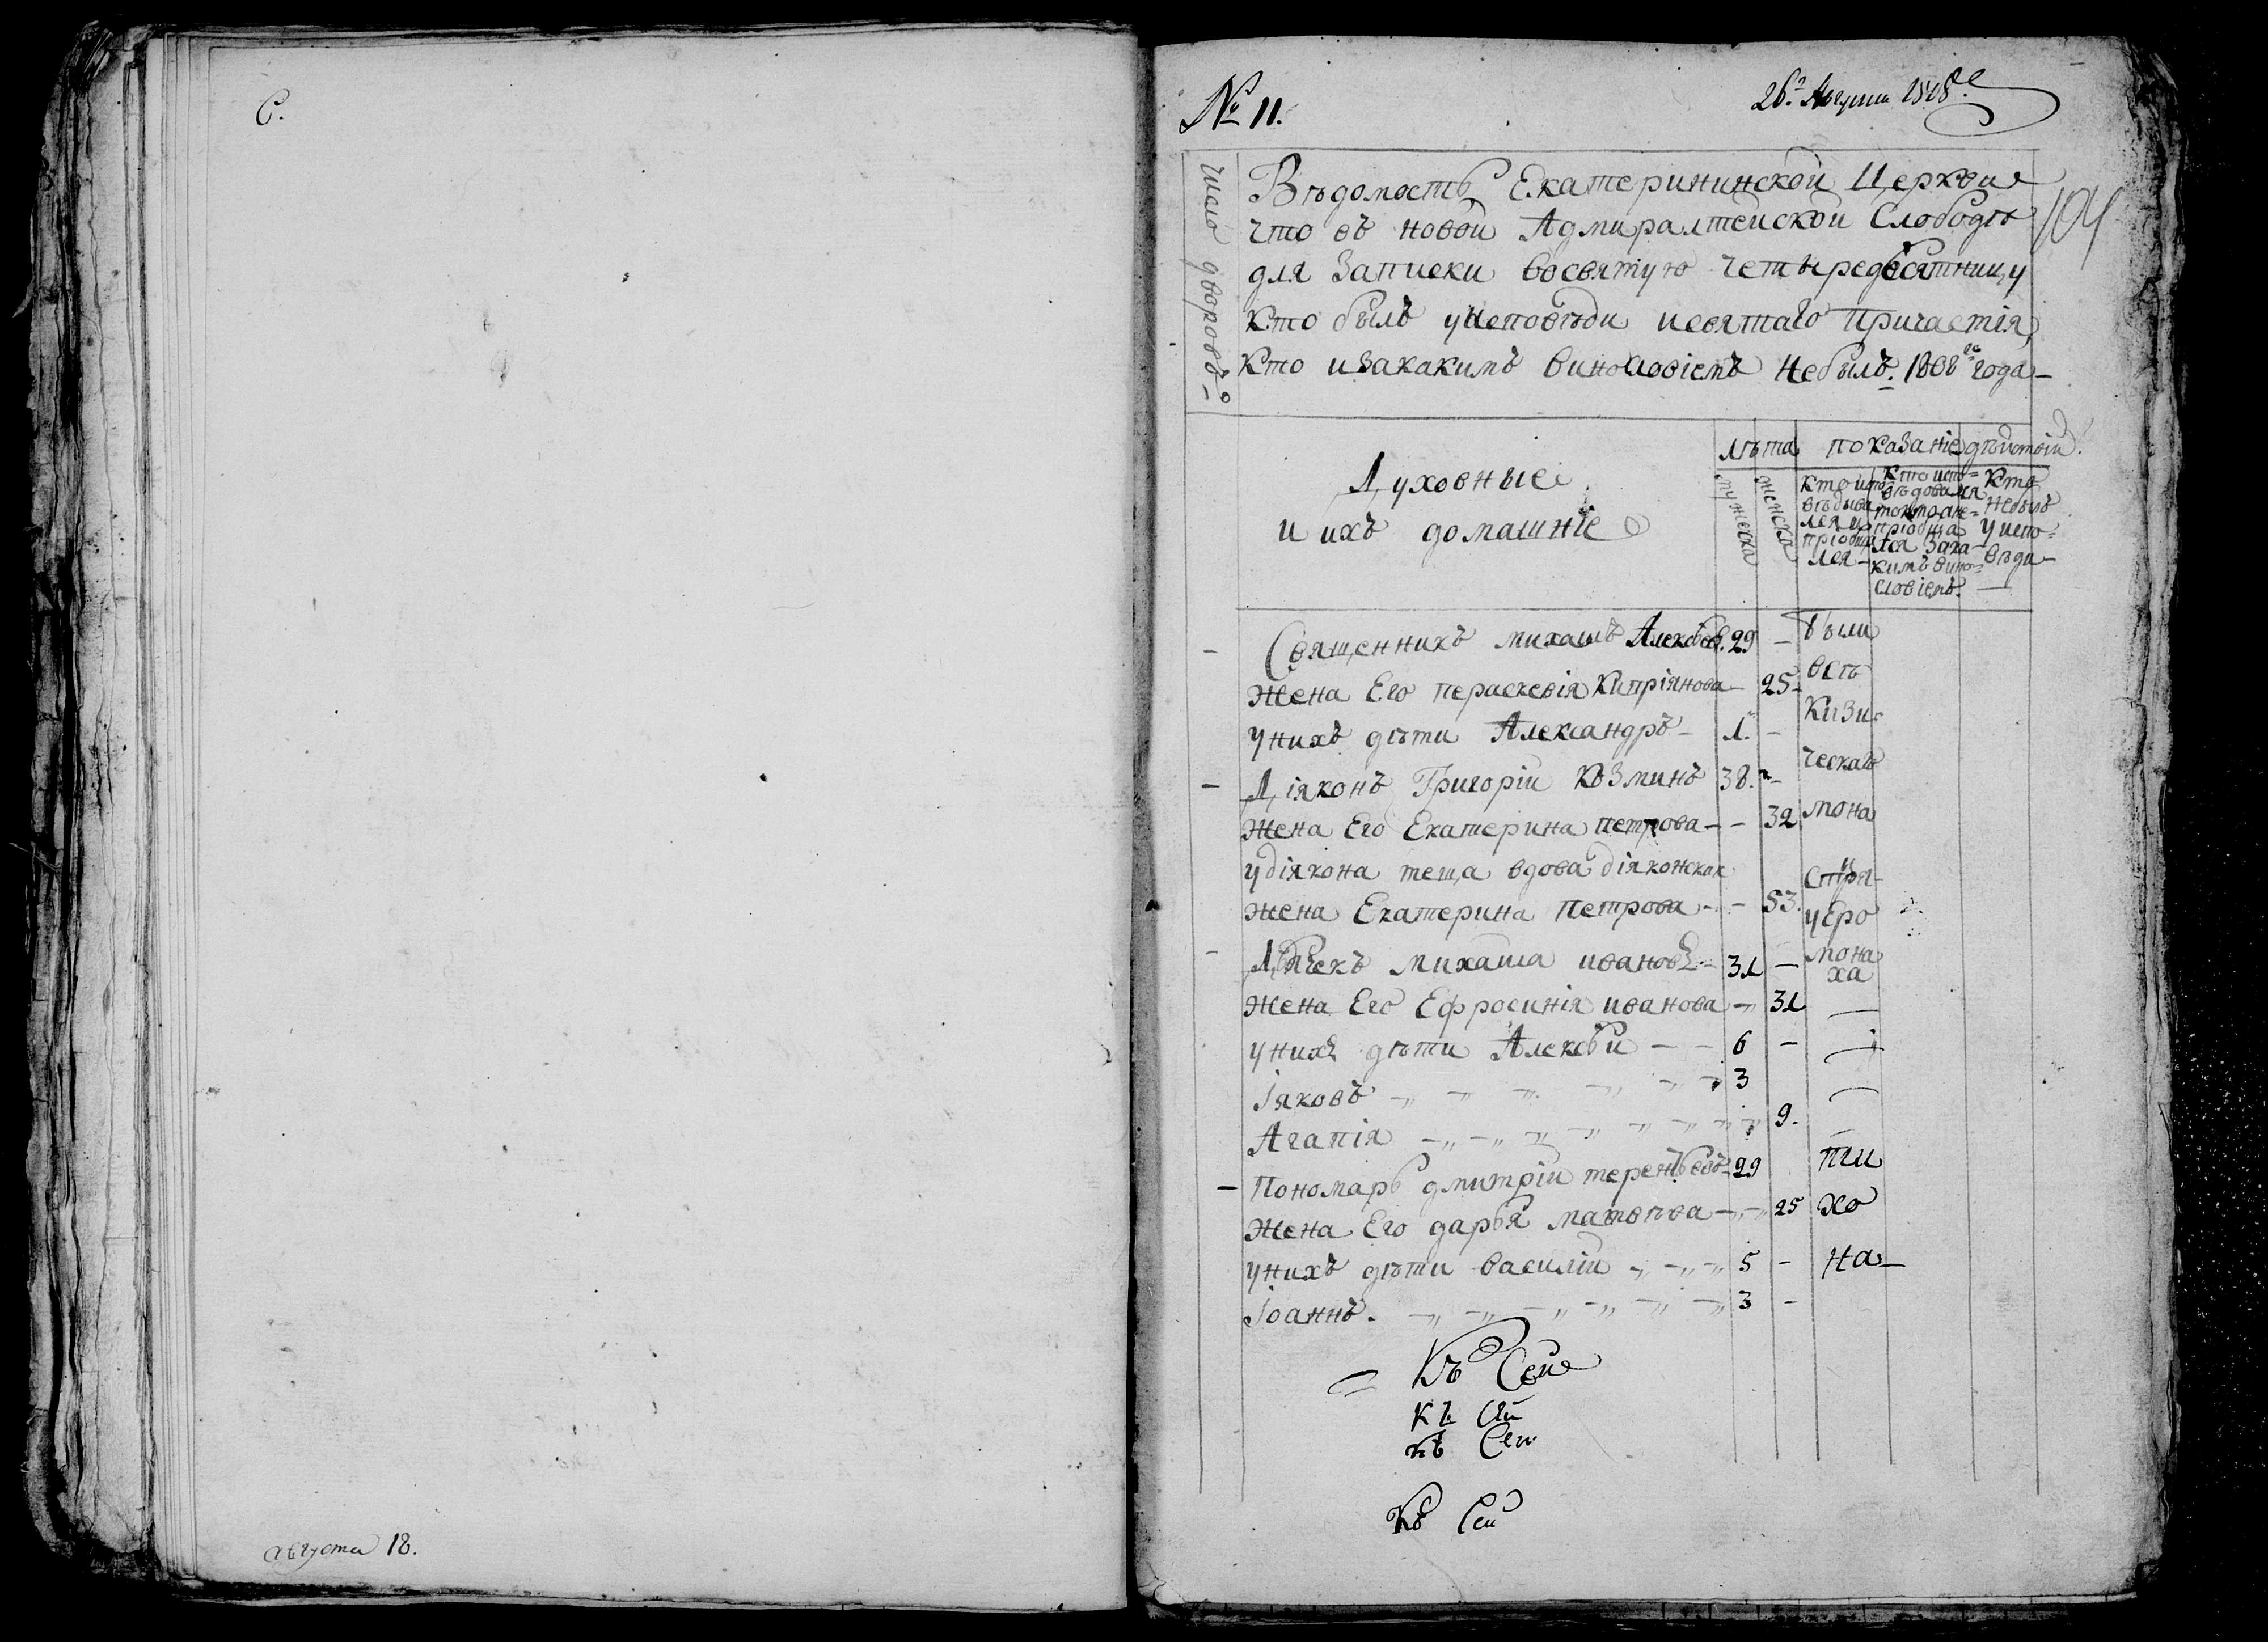 С.
августа 18.
№ 11.
26. Августа 1808.
104
число дворовъ
Вѣдомость Екатерининской Церкви
что въ новой Адмиралтейской Слободѣ
для записки восвятую четыредесятницу
кто былъ уисповѣди исвятаго Причастія,
кто изакакимъ винословіемъ небылъ. 1808 го года
Духовные
и ихъ домашніе
лѣта показаніе дѣйствій.
мужеска
женска
Кто испо
вѣдыва
лся и
пріобща
лся
Кто испо=
вѣдовался
токмо а не
пріобща
лся зака
кимъ вино=
словіемъ.
Кто
небылъ
у испо=
вѣди
Священникъ михаилъ Алексѣев. 29 – были
Жена Его параскевія Кипріянова – 25 всѣ
унихъ дѣти Александръ – 1. – Кизи
Діяконъ Григорій Козминъ 38. – ческаго
Жена Его Екатерина петрова – – 32 мона
удіякона теща вдова діяконская
жена Екатерина Петрова – – 53. уЕро
Дьячекъ михаила ивановъ – 31 – мона
ха
Жена Его Ефросинія иванова – 31
унихъ дѣти Алексѣи – – 6 –
Іяковъ 3
Агапія 9.
Пономарь дмитріи терентьевъ 29 пи
Жена Его дарья матвѣева 25 хо
унихъ дѣти василіи 5 – на
Іоаннъ. 3 –
Къ Сей
къ Сей
къ Сей
Къ Сей